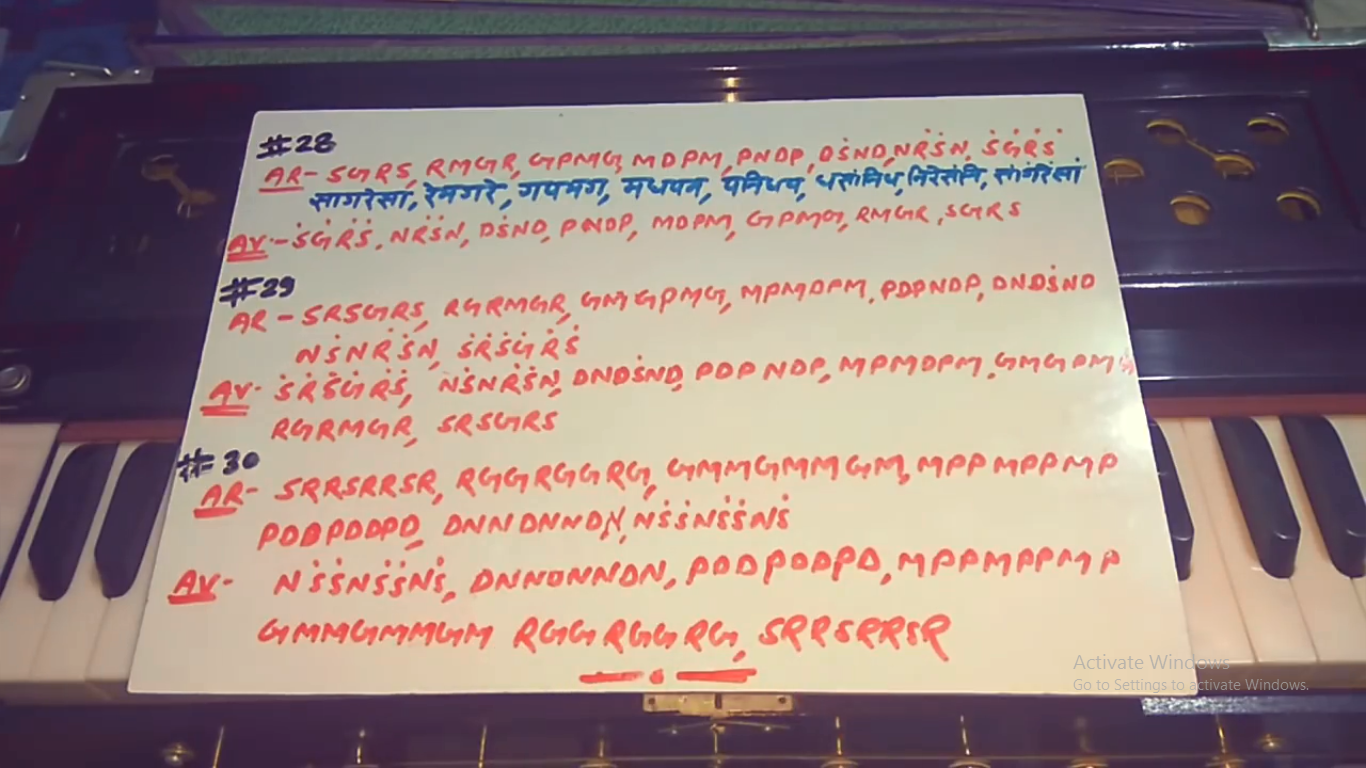 #28
AR- SGRS, RMGR, GPMG, MDPM, PNDP, DṠND, NṘṠN, ṠĠṘṠ
सागरेसा, रेमगरे, गपमग, मधपम, पनिधप, धसांनिध, निरेंसांनि, सांगंरेंसां
AV:- ṠĠṘṠ, NṘṠN, DṠND, PNDP, MDPM, GPMG, RMGR, SGRS
#29
AR - SRSGRS, RGRMGR, GMGPMG, MPMDPM, PDPNDP, DNDṠND
NṠNṘṠN, ṠṘṠĠṘṠ
AV- ṠṘṠĠṘṠ, NṠNṘṠN, DNDṠND, PDPNDP, MPMDPM, GMGPMG
RGRMGR, SRSGRS
#30
AR- SRRSRRSR, RGGRGGRG, GMMGMMGM, MPPMPPMP
PDDPDDPD, DNNDNNDN, NṠṠNṠṠNṠ
AV- NṠṠNṠṠNṠ, DNNDNNDN, PDDPDDPD, MPPMPPMP
GMMGMMGM RGGRGGRG, SRRSRRSR
Activate Windows
Go to Settings to activate Windows.